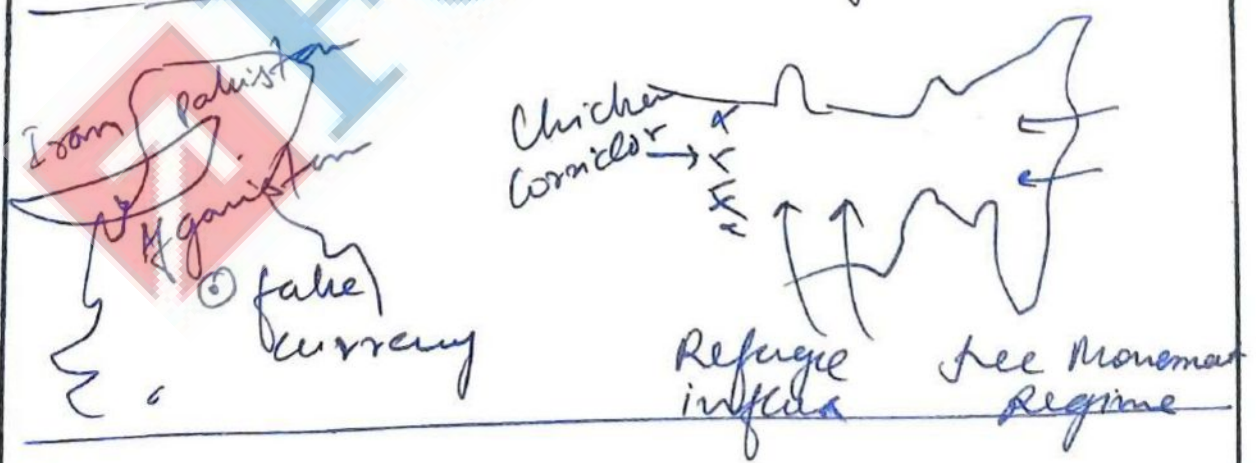 Iran
Pakistan
Afganistan
fake
currency
Chicken
Corridor
Refugee
influx
free Movement
Regime